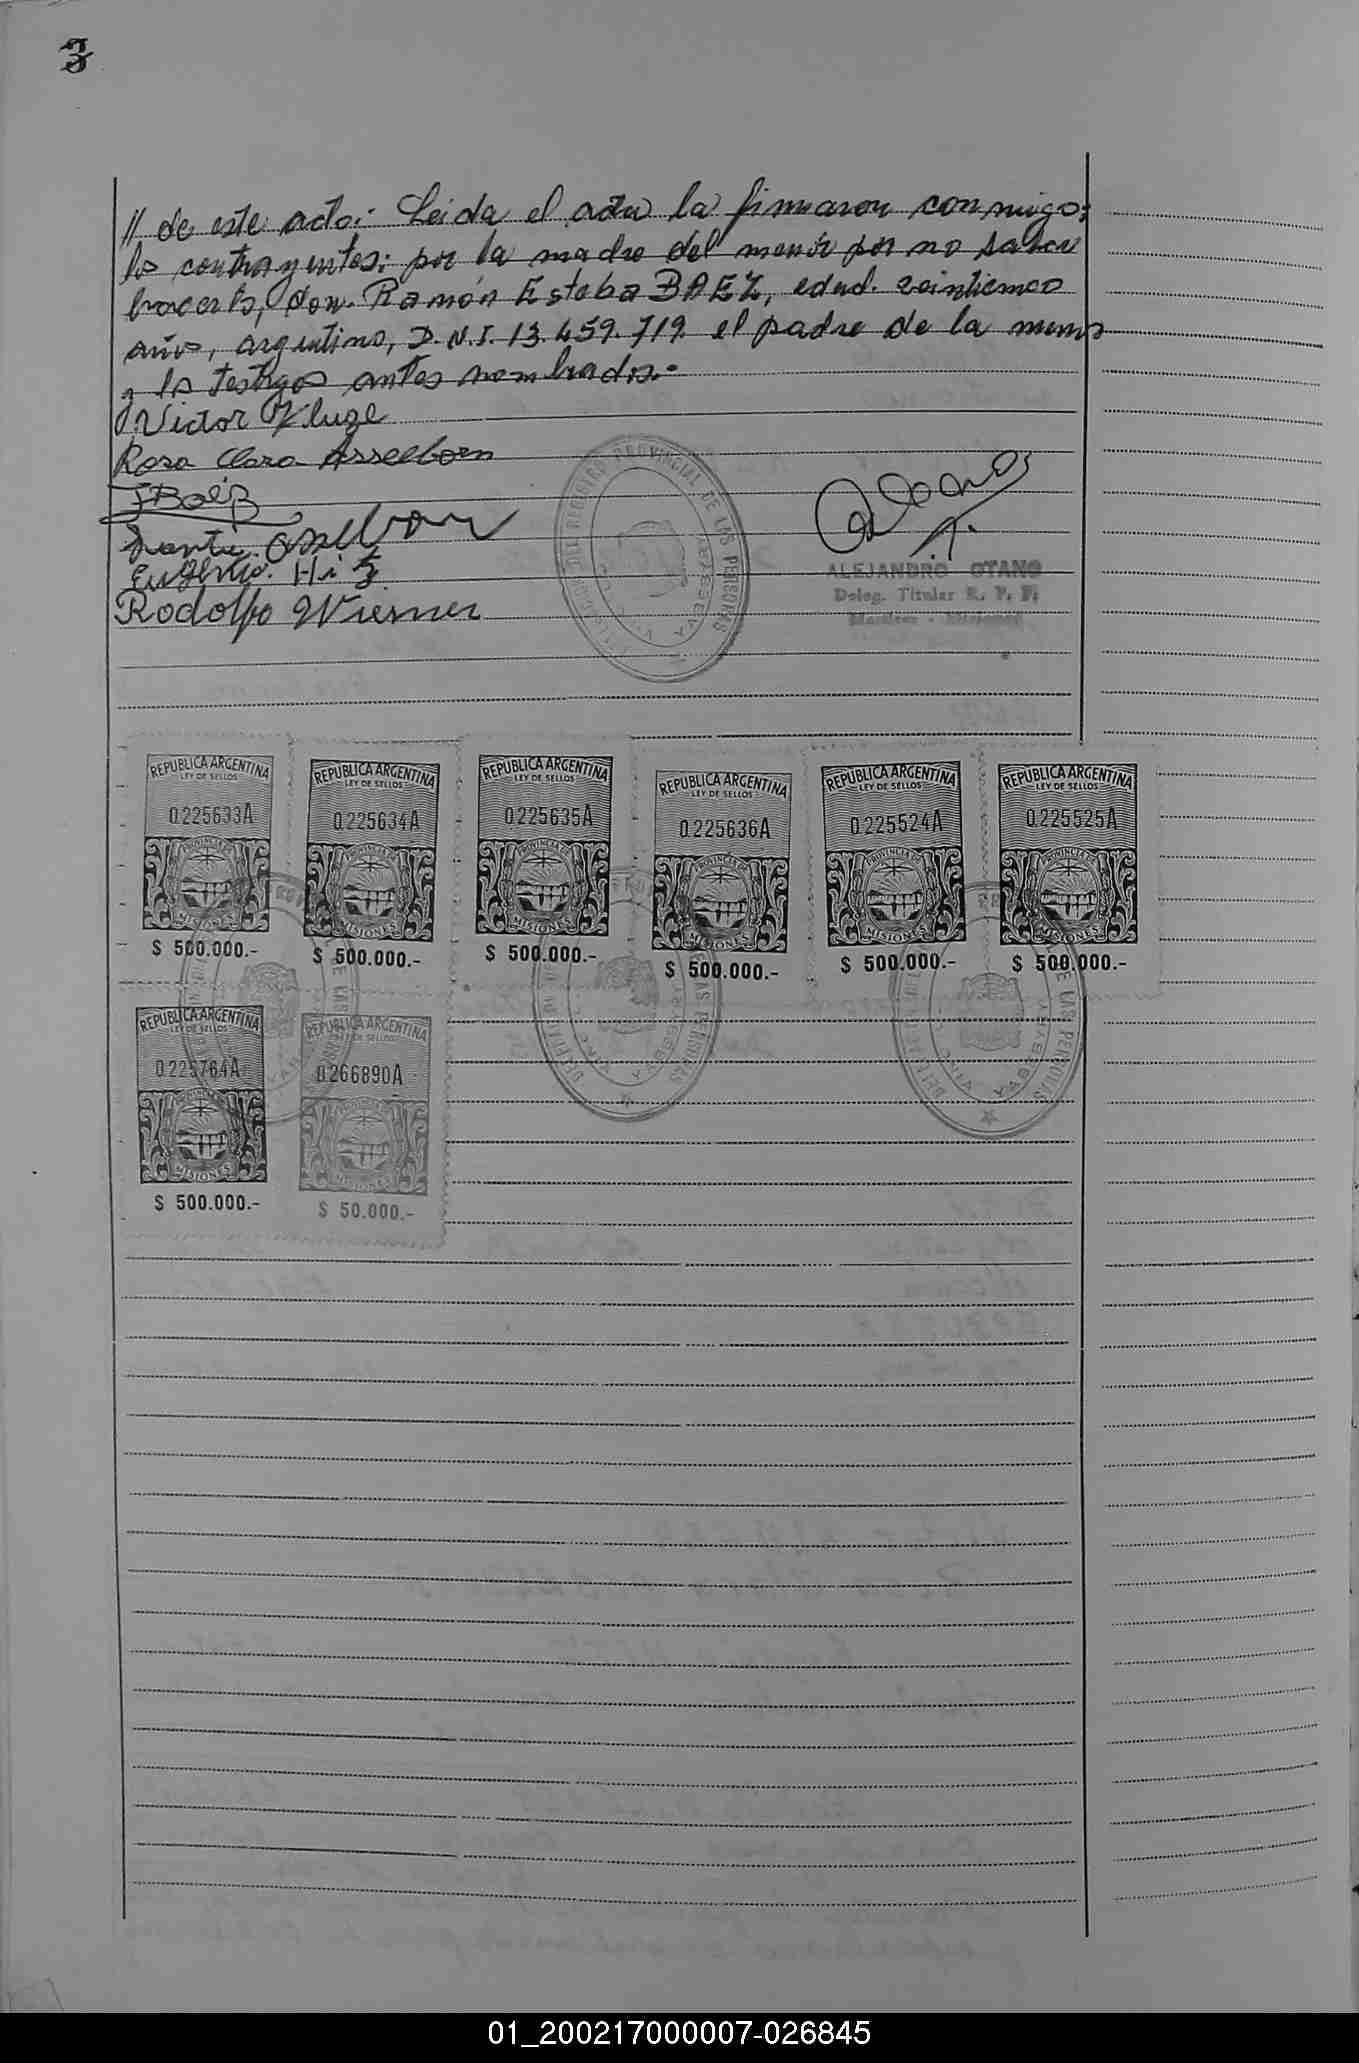 3
// de este acto: Leida el acta la firmaron conmigo:
los contrayentes: por la madre del menor por no saber
hacerlo, don. Ramón Esteba BAEZ, edad. veinticinco
años, argentino, D.N.I. 13.459.719. el padre de la menor
y los testigos antes nombrados.-
Victor Kluge
Rosa Clara Asselborn
Eugenio. Hitz
Rodolfo Wiesner
REGISTRO PROVINCIAL DE LAS PERSONAS
ALEJANDRO OTANO
Deleg. Titular R. P. P.
Martires - Misiones
REPUBLICA ARGENTINA
LEY DE SELLOS
0.225633A
MISIONES
$ 500.000.-
REPUBLICA ARGENTINA
LEY DE SELLOS
0.225634A
MISIONES
$ 500.000.-
REPUBLICA ARGENTINA
LEY DE SELLOS
0.225635A
MISIONES
$ 500.000.-
REPUBLICA ARGENTINA
LEY DE SELLOS
0.225636A
PROVINCIA DE
MISIONES
$ 500.000.-
REPUBLICA ARGENTINA
LEY DE SELLOS
0.225524A
PROVINCIA DE
MISIONES
$ 500.000.-
REPUBLICA ARGENTINA
LEY DE SELLOS
0.225525A
PROVINCIA DE
MISIONES
$ 500.000.-
REPUBLICA ARGENTINA
LEY DE SELLOS
0.225764A
MISIONES
$ 500.000.-
REPUBLICA ARGENTINA
LEY DE SELLOS
0.266890A
MISIONES
$ 50.000.-
01_200217000007-026845